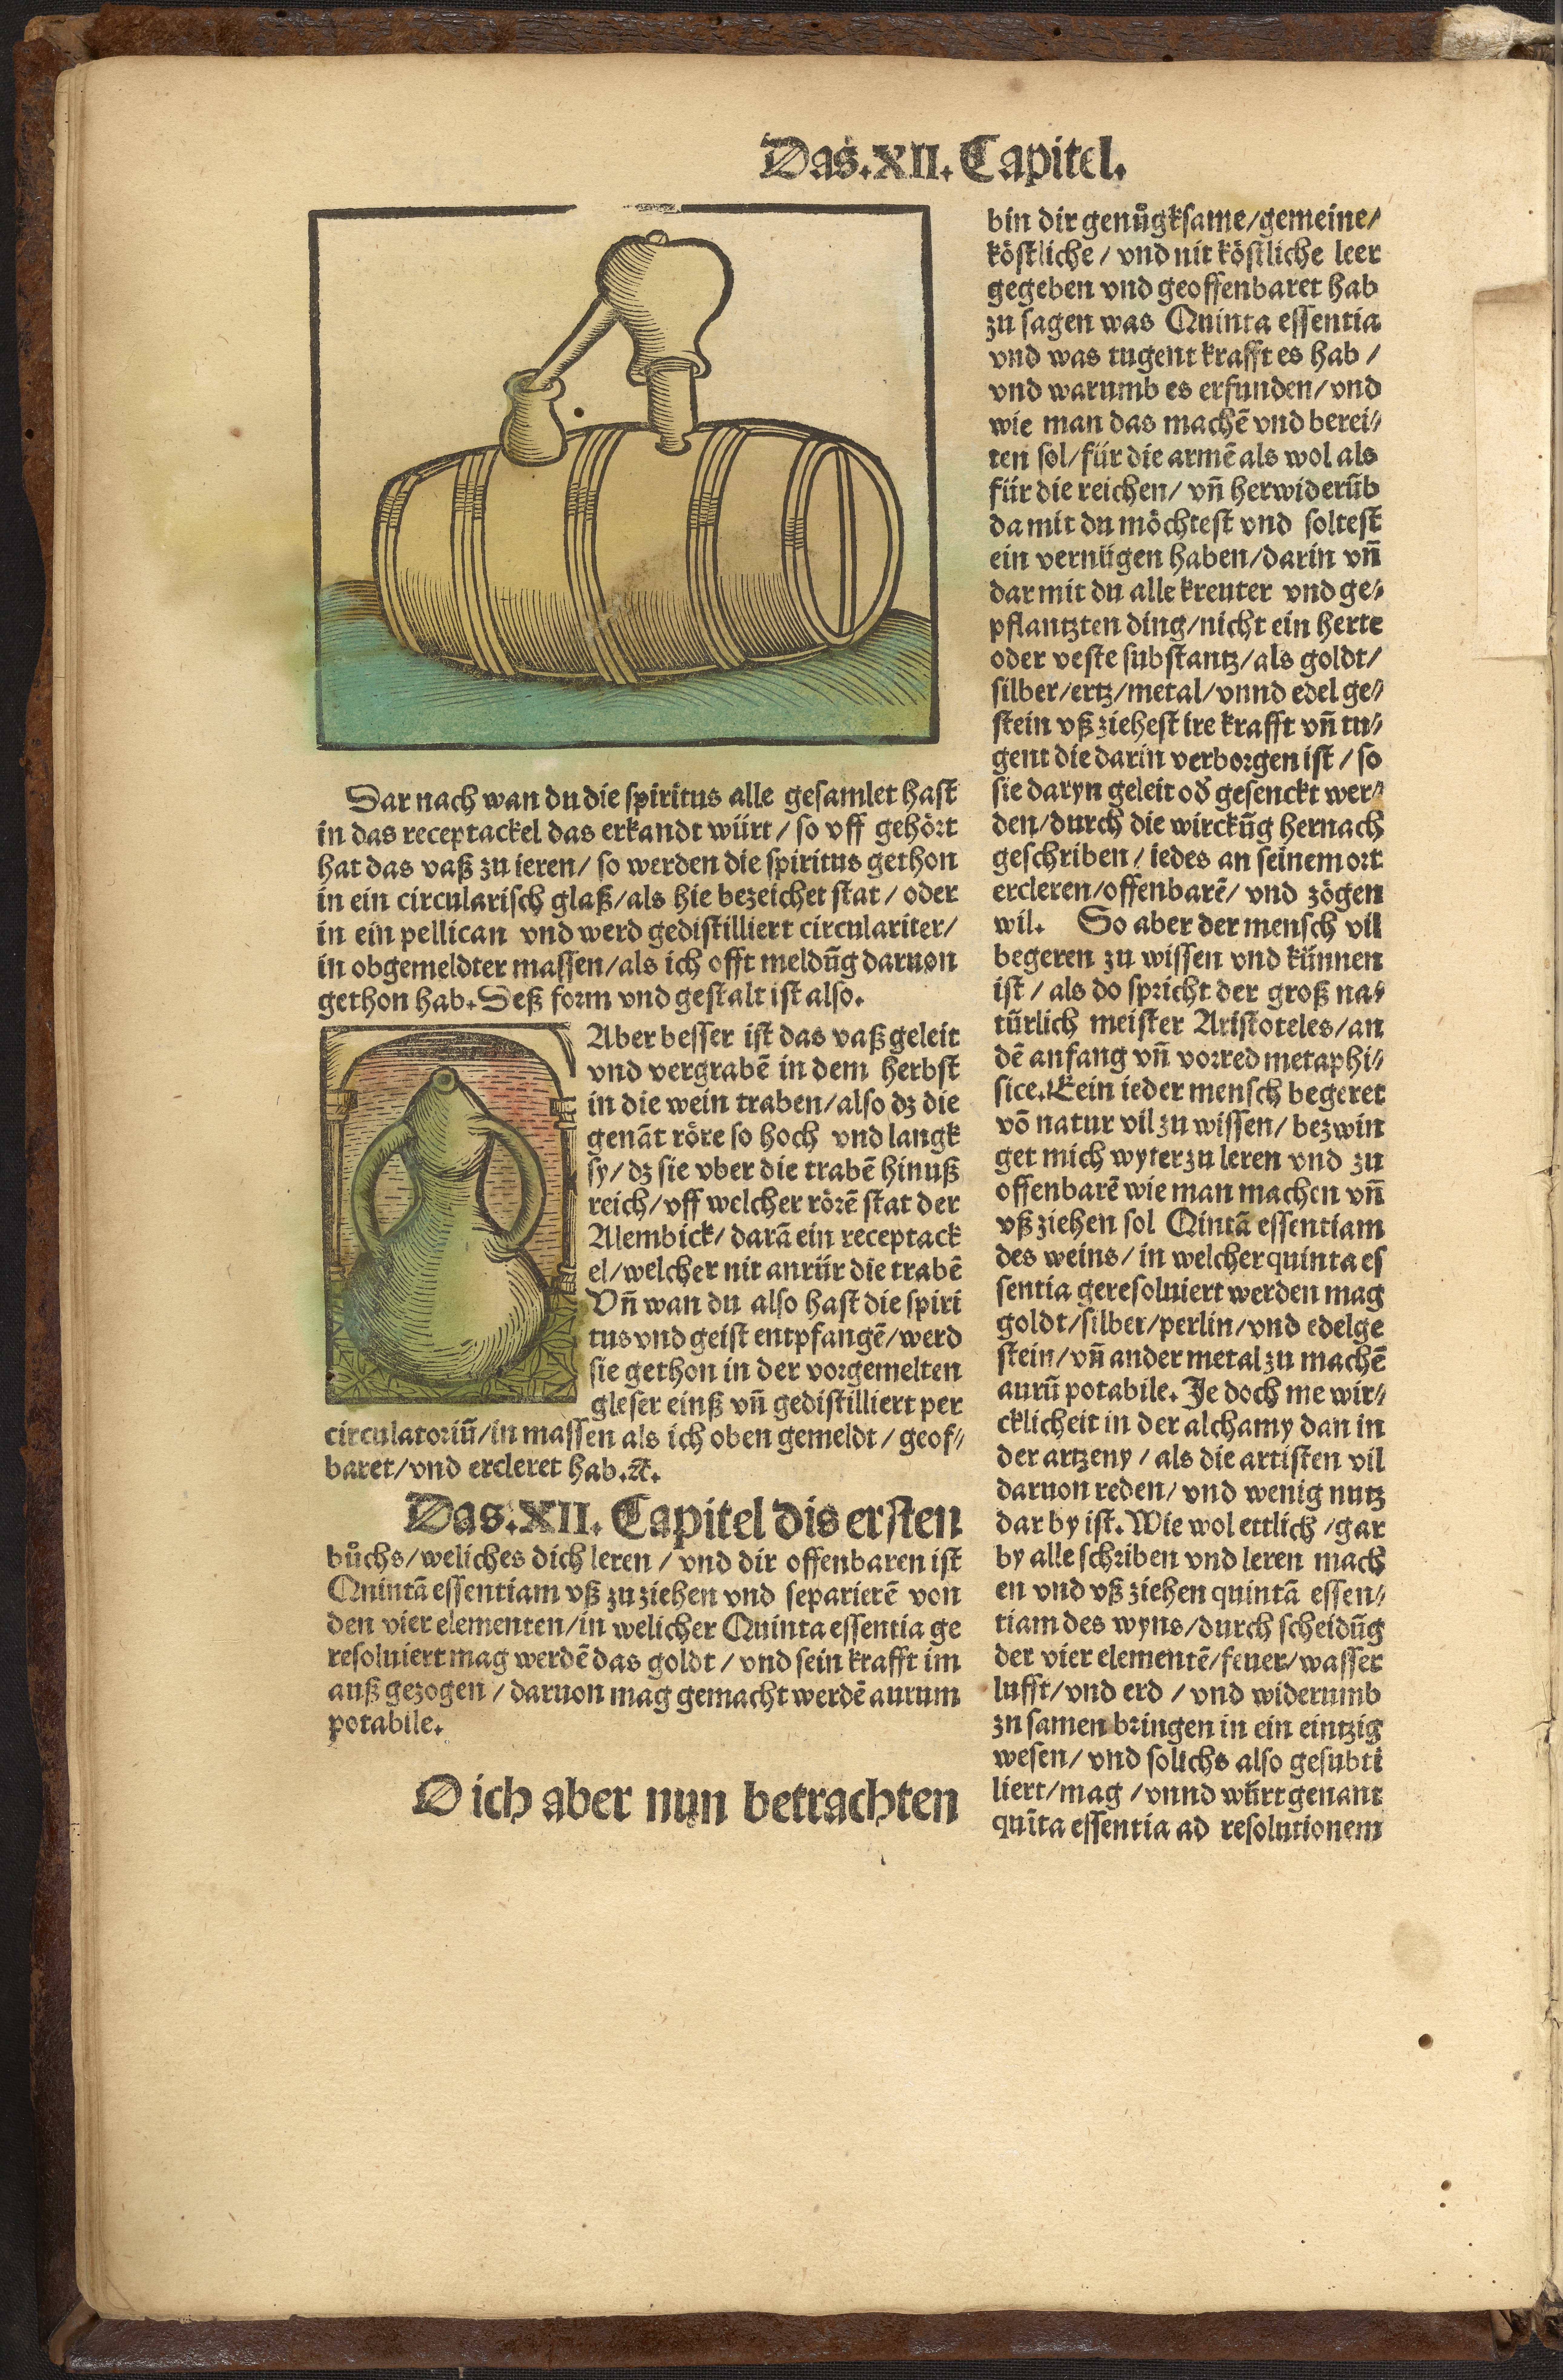 Das.XII.Capitel.
Dar nach wan du die spiritus alle gesamlet hast
in das receptackel das erkandt würt/ so vff gehört
hat das vaß zu ieren/ so werden die spiritus gethon
in ein circularisch glaß/als hie bezeichet stat/ oder
in ein pellican vnd werd gedistilliert circulariter/
in obgemeldter massen/als ich offt meldūg daruon
gethon hab.Deß form vnd gestalt ist also.
Aber besser ist das vaß geleit
vnd vergrabē in dem herbst
in die wein traben/also dz die
genāt röre so hoch vnd langk
sy/dz sie vber die trabē hinuß
reich/vff welcher rörē stat der
Alembick/ darā ein receptack
el/welcher nit anrür die trabē
Vn̄ wan du also hast die spiri
tus vnd geist entpfangē/werd
sie gethon in der vorgemelten
gleser einß vn̄ gedistilliert per
circulatoriū/in massen als ich oben gemeldt/ geof⸗
baret/vnd ercleret hab.⁊c.
Das.XII.Capitel dis ersten
bůchs/weliches dich leren/ vnd dir offenbaren ist
Quintā essentiam vß zu ziehen vnd separierē von
den vier elementen/in welicher Quinta essentia ge
resoluiert mag werdē das goldt/ vnd sein krafft im
auß gezogen/ daruon mag gemacht werdē aurum
potabile.
O ich aber nun betrachten
bin dir genůgksame/gemeine/
köstliche/ vnd nit köstliche leer
gegeben vnd geoffenbaret hab
zu sagen was Quinta essentia
vnd was tugent krafft es hab/
vnd warumb es erfunden/vnd
wie man das machē vnd berei⸗
ten sol/für die armē als wol als
für die reichen/ vn̄ herwiderūb
da mit du möchtest vnd soltest
ein vernügen haben/darin vn̄
dar mit du alle kreuter vnd ge⸗
pflantzten ding/nicht ein herte
oder veste substantz/als goldt/
silber/ertz/metal/vnnd edel ge⸗
stein vß ziehest ire krafft vn̄ tu⸗
gent die darin verborgen ist/ so
sie daryn geleit od̛ gesenckt wer⸗
den/durch die wirckūg hernach
geschriben/ iedes an seinem ort
ercleren/offenbarē/ vnd zögen
wil. So aber der mensch vil
begeren zu wissen vnd künnen
ist/ als do spricht der groß na⸗
türlich meister Aristoteles/an
dē anfang vn̄ vorred metaphi⸗
sice.Eein ieder mensch begeret
vō natur vil zu wissen/ bezwin
get mich wyter zu leren vnd zu
offenbarē wie man machen vn̄
vß ziehen sol Qintā essentiam
des weins/ in welcher quinta es
sentia geresoluiert werden mag
goldt/silber/perlin/vnd edelge
stein/vn̄ ander metal zu machē
aurū potabile. Je doch me wir⸗
cklicheit in der alchamy dan in
der artzeny/ als die artisten vil
daruon reden/ vnd wenig nutz
dar by ist.Wie wol ettlich/gar
by alle schriben vnd leren mach
en vnd vß ziehen quintā essen⸗
tiam des wyns/durch scheidūg
der vier elementē/feuer/wasser
lufft/vnd erd/ vnd widerumb
zu samen bringen in ein eintzig
wesen/ vnd solichs also gesubti
liert/mag/vnnd würt genant
quīta essentia ad resolutionem